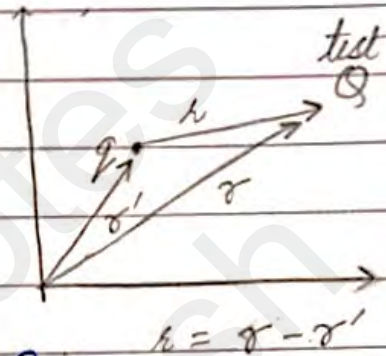 test
Q
r
q
r
r'
r = r - r'